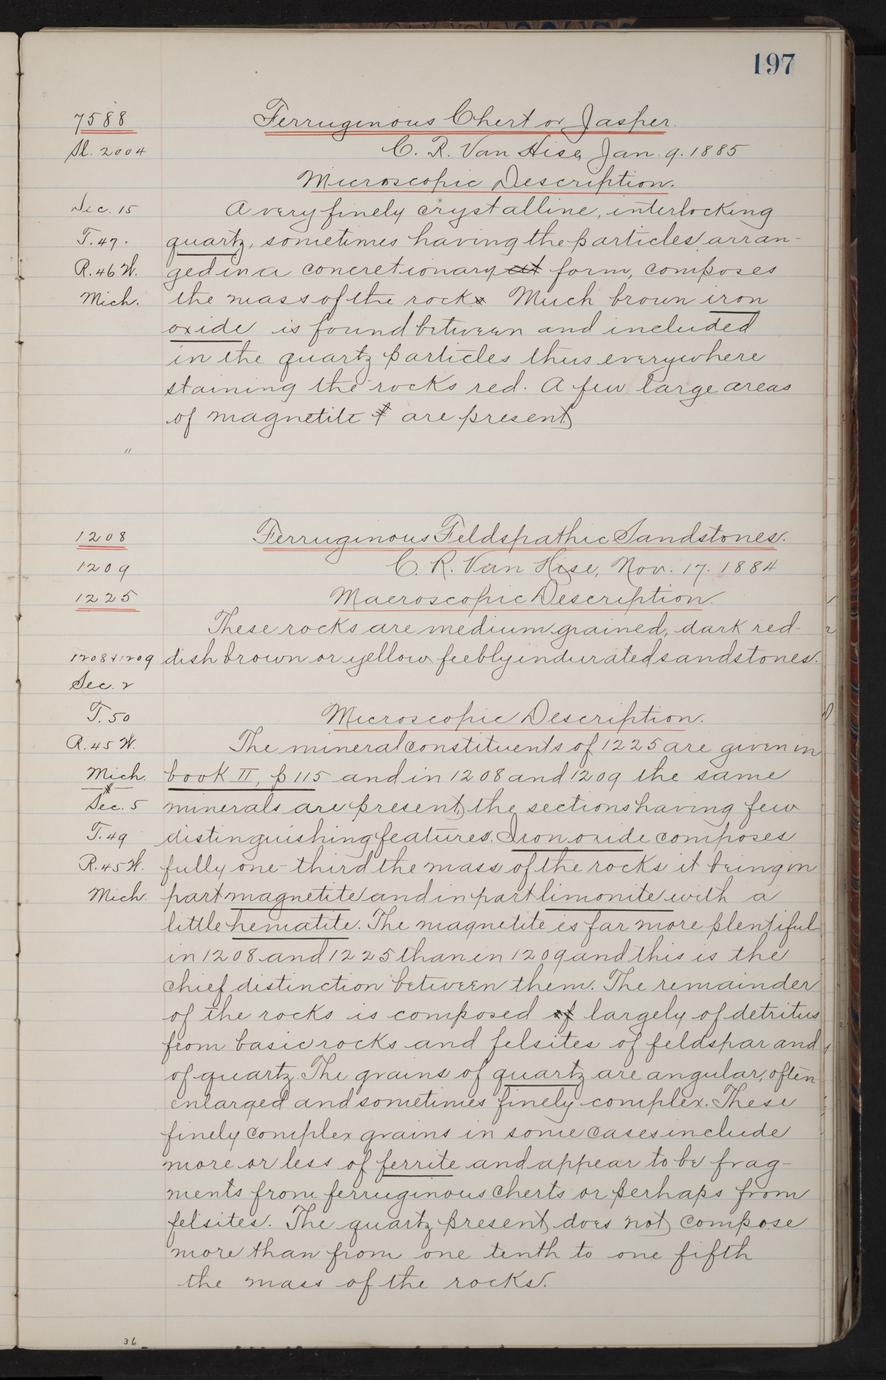 197
7588 Ferruginous Chert or Jasper.
Sl. 2004 C. R. Van Hise, Jan. 9. 1885
Microscopic Description.
Sec. 15 A very finely crystalline, interlocking
T. 47. quartz, sometimes having the particles arran-
R. 46 W. ged in a concretionary form, composes
Mich. the mass of the rock. Much brown iron
oxide is found between and included
in the quartz particles thus everywhere
staining the rocks red. A few large areas
of magnetite are present
"
1208 Ferruginous Feldspathic Sandstones.
1209 C. R. Van Hise, Nov. 17. 1884
1225 Macroscopic Description.
These rocks are medium grained, dark red-
1208 & 1209 dish brown or yellow feebly indurated sandstones.
Sec. 2
T. 50 Microscopic Description.
R. 45 W. The mineral constituents of 1225 are given in
Mich. book II, p 115 and in 1208 and 1209 the same
Sec. 5 minerals are present, the sections having few
T. 49 distinguishing features. Iron oxide composes
R. 45 W. fully one-third the mass of the rocks it being in
Mich. part magnetite and in part limonite with a
little hematite. The magnetite is far more plentiful
in 1208 and 1225 than in 1209 and this is the
chief distinction between them. The remainder
of the rocks is composed of largely of detritus
from basic rocks and felsites of feldspar and
of quartz. The grains of quartz are angular, often
enlarged and sometimes finely complex. These
finely complex grains in some cases include
more or less of ferrite and appear to be frag-
ments from ferruginous cherts or perhaps from
felsites. The quartz present does not compose
more than from one tenth to one fifth
the mass of the rocks.
36